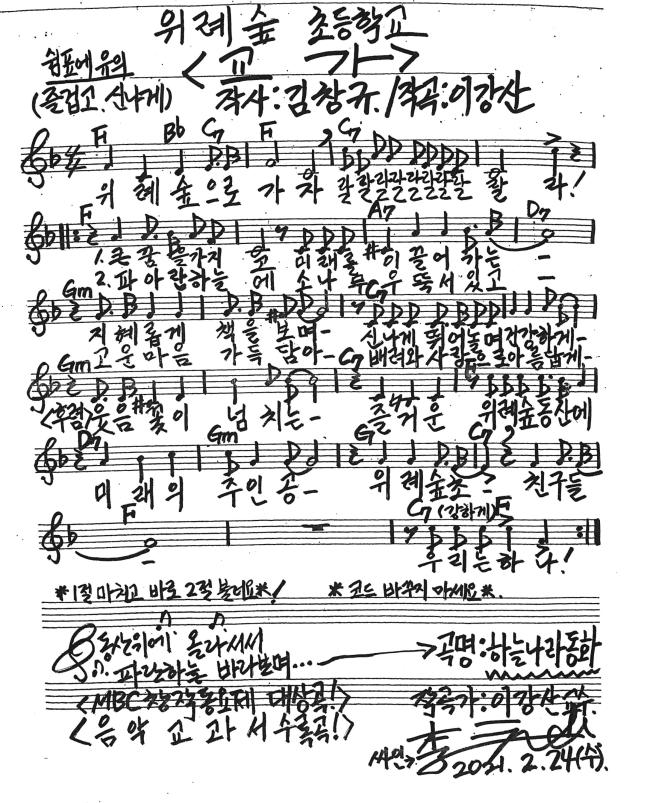 위례숲 초등학교
쉼표에 유의 <교 가>
(즐겁고 신나게) 작사:김창규./작곡:이강산
F Bb C7 F C7
위 례 숲 으로 가 자 랄랄랄랄랄랄랄 랄 라!
F A7 D7
1.큰 꿈 을가지 고 미래를 이 끌어 가는 –
2.파 아란하늘 에 소나무 우 뚝서 있고 –
Gm C7
지 혜롭게 책을 보며– 신나게 뛰어놀며건강하게–
고 운마음 가득 담아– 배려와 사랑으로아름답게–
Gm C7 F
<후렴>웃음 꽃이 넘 치는– 즐 거 운 위례숲동산에
D7 Gm G7 C7
미 래의 주인 공– 위 례숲초– 친구들
F C7 (강하게) F
– 우 리 는 하 나!
*1절 마치고 바로 2절 불러요*! *코드 바꾸지 마세요*.
동산위에 올라서서
파란하늘 바라보며... →곡명:하늘나라동화
<MBC창작동요제 대상곡!> 작곡가:이강산
<음악 교과서수록곡!>
싸인> 2021. 2. 24(수).